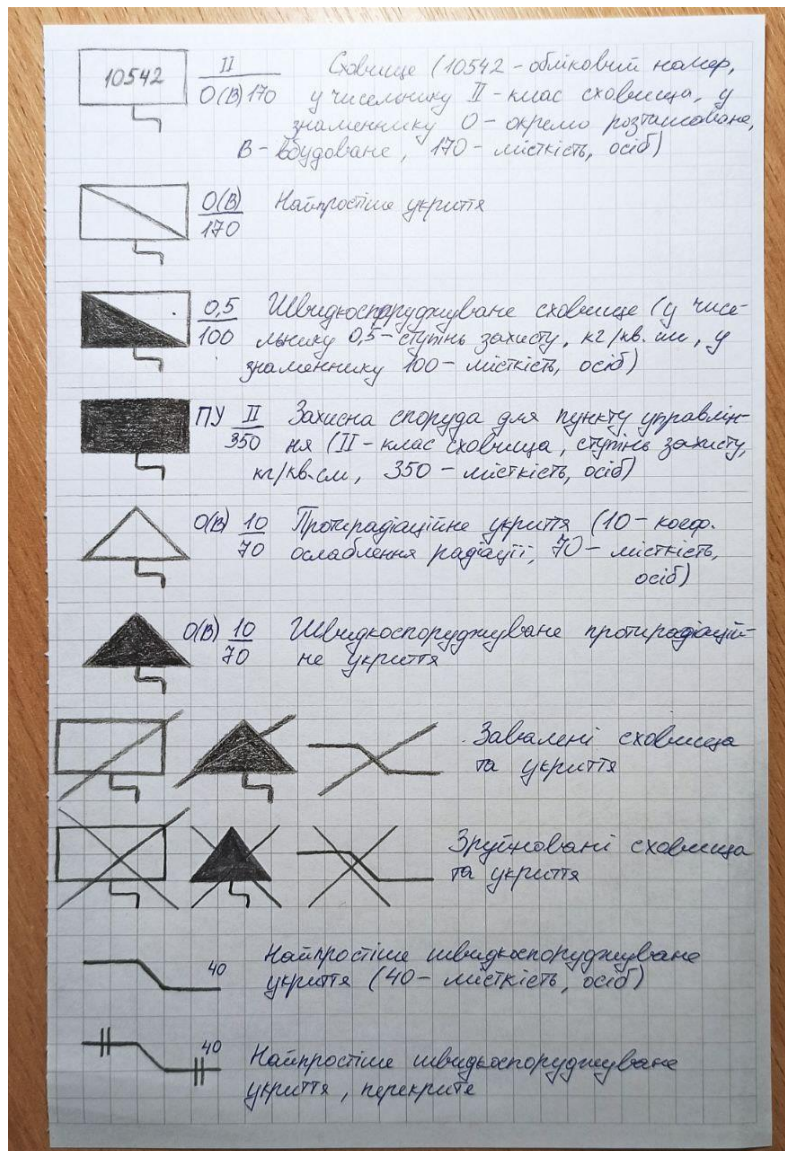 10542 II Сховище (10542 - обліковий номер,
О(В) 170 у чисельнику II - клас сховища, у
знаменнику О - окремо розташоване,
В - вбудоване, 170 - місткість, осіб)
О(В) Найпростіше укриття
170
0,5 Швидкоспоруджуване сховище (у чисе-
100 льнику 0,5 - ступінь захисту, кг/кв. см, у
знаменнику 100 - місткість, осіб)
ПУ II Захисна споруда для пункту управлін-
350 ня (II - клас сховища, ступінь захисту,
кг/кв.см, 350 - місткість, осіб)
О(В) 10 Протирадіаційне укриття (10 - коеф.
70 ослаблення радіації, 70 - місткість,
осіб)
О(В) 10 Швидкоспоруджуване протирадіацій-
70 не укриття
Завалені сховища
та укриття
Зруйновані сховища
та укриття
40 Найпростіше швидкоспоруджуване
укриття (40 - місткість, осіб)
40 Найпростіше швидкоспоруджуване
укриття, перекрите